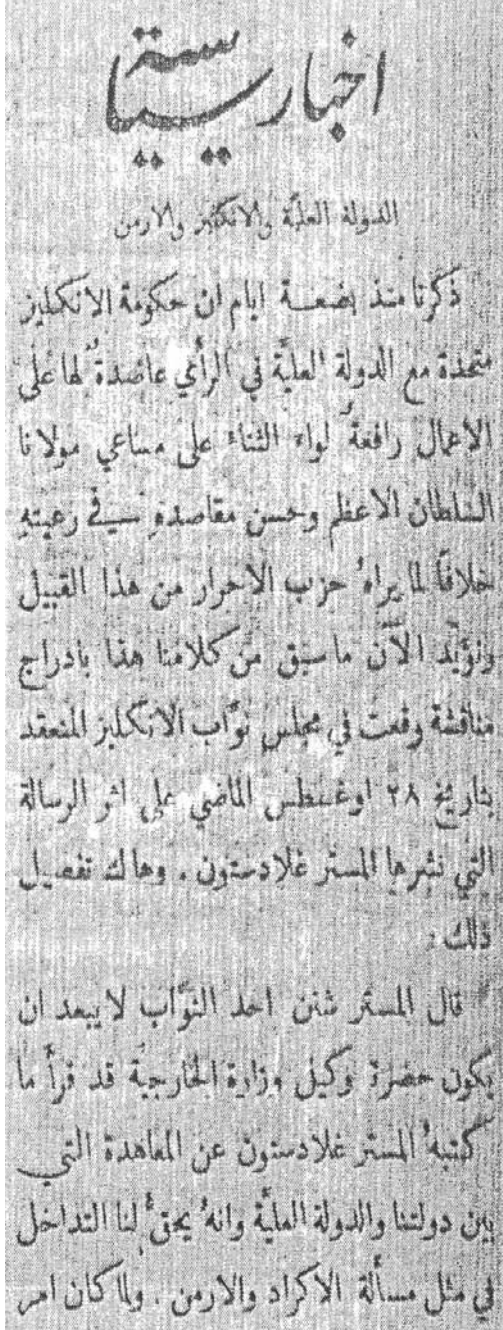 اخبار سياسية
الدولة العليّة والانكليز والارمن
ذكرنا منذ بضعة ايام ان حكومة الانكليز
متحدة مع الدولة العليّة في الرأي عاضدةٌ لها على
الاعمال رافعةٌ لواء الثناء على مساعي مولانا
السلطان الاعظم وحسن مقاصدهِ في رعيتهِ
خلافًا لما يراهُ حزب الاحرار من هذا القبيل
ونؤيّد الآن ما سبق من كلامنا هذا بادراج
مناقشة وقعت في مجلس نوّاب الانكليز المنعقد
بتاريخ ٢٨ اوغسطس الماضي على اثر الرسالة
التي نشرها المستر غلادستون . وهاك تفصيل
ذلك :
قال المستر شنن احد النوّاب لا يبعد ان
يكون حضرة وكيل وزارة الخارجية قد قرأ ما
كتبهُ المستر غلادستون عن المعاهدة التي
بين دولتنا والدولة العليّة وانهُ يحقّ لنا التداخل
في مثل مسألة الاكراد والارمن . ولما كان امر